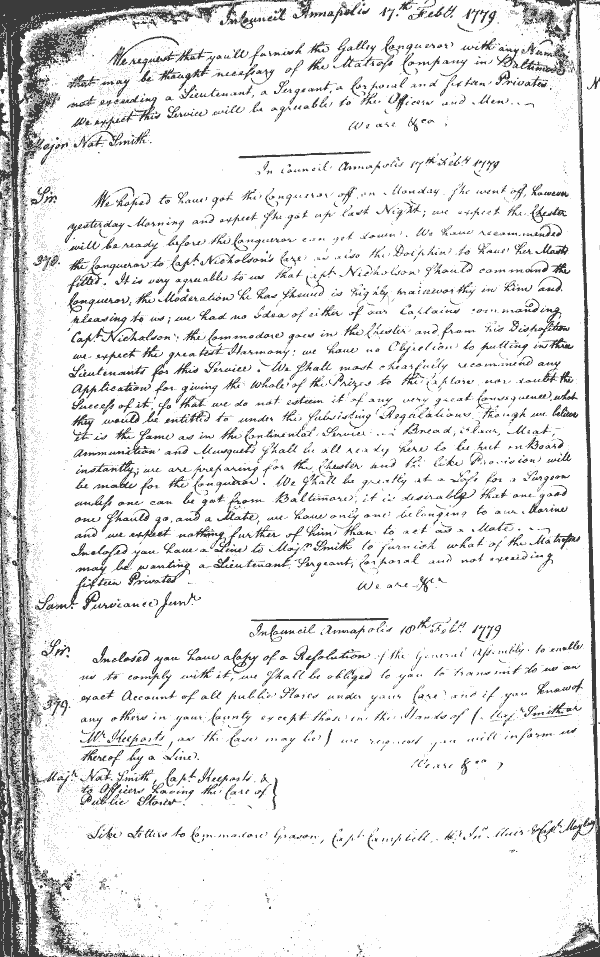 In Council Annapolis 17.th Feb.y 1779.
We request that you'll furnish the Galley Conqueror with any Number
that may be thought necessary of the Matross Company in Baltimore
not exceeding a Lieutenant, a Sergeant, a Corporal and fifteen Privates.
We expect this Service will be agreable to the Officers and Men.
We are &ca.
Major Nat. Smith.
In Council Annapolis 17th Feb.y 1779
Sir.
We hoped to have got the Conqueror off on Monday. She went off, however
yesterday Morning and expect She got up last Night; we expect the Chester
will be ready before the Conqueror can get down. We have recommended
378. the Conqueror to Capt. Nicholson's Care, as also the Dolphin to have her Masts
fitted. It is very agreable to us that Capt. Nicholson Should command the
Conqueror, the Moderation he has shewed is highly praiseworthy in him and
pleasing to us; we had no Idea of either of our Captains commanding
Capt. Nicholson; the Commodore goes in the Chester and from his Disposition
we expect the greatest Harmony; we have no Objection to putting in three
Lieutenants for this Service. We Shall most chearfully recommend any
Application for giving the whole of the Prizes to the Captors nor doubt the
Success of it, So that we do not esteem it of any very great Consequence, what
they would be entitled to under the Subsisting Regulations, though we believe
it is the Same as in the Continental Service. Bread, Flour, Meat,
Ammunition and Musquets Shall be all ready here to be put on Board
instantly; we are preparing for the Chester and the like Provision will
be made for the Conqueror. We Shall be greatly at a Loss for a Surgeon
unless one can be got from Baltimore, it is desirable that one good
one Should go, and a Mate, we have only one belonging to our Marine
and we expect nothing further of him than to act as a Mate.
Inclosed you have a Line to Maj.r Smith to furnish what of the Matrosses
may be wanting a Lieutenant Sergeant, Corporal and not exceeding
fifteen Privates
We are &ca
Sam.l Purviance Jun.r
In Council Annapolis 18th Feb.y 1779
Sir.
Inclosed you have a Copy of a Resolution of the General Assembly. to enable
us to comply with it, we Shall be obliged to you to transmit to us an
exact Account of all public Stores under your Care and if you know of
379. any others in your County except those in the Hands of (Maj.r Smith or
Mr. Keeports, as the Case may be) we request you will inform us
thereof by a Line.
We are &ca,
Maj.r Nat. Smith, Capt. Keeports, &
to Officers having the Care of
Public Stores
Like Letters to Commodore Grason, Capt. Campbell, Mr. Jno. Muir & Capt.